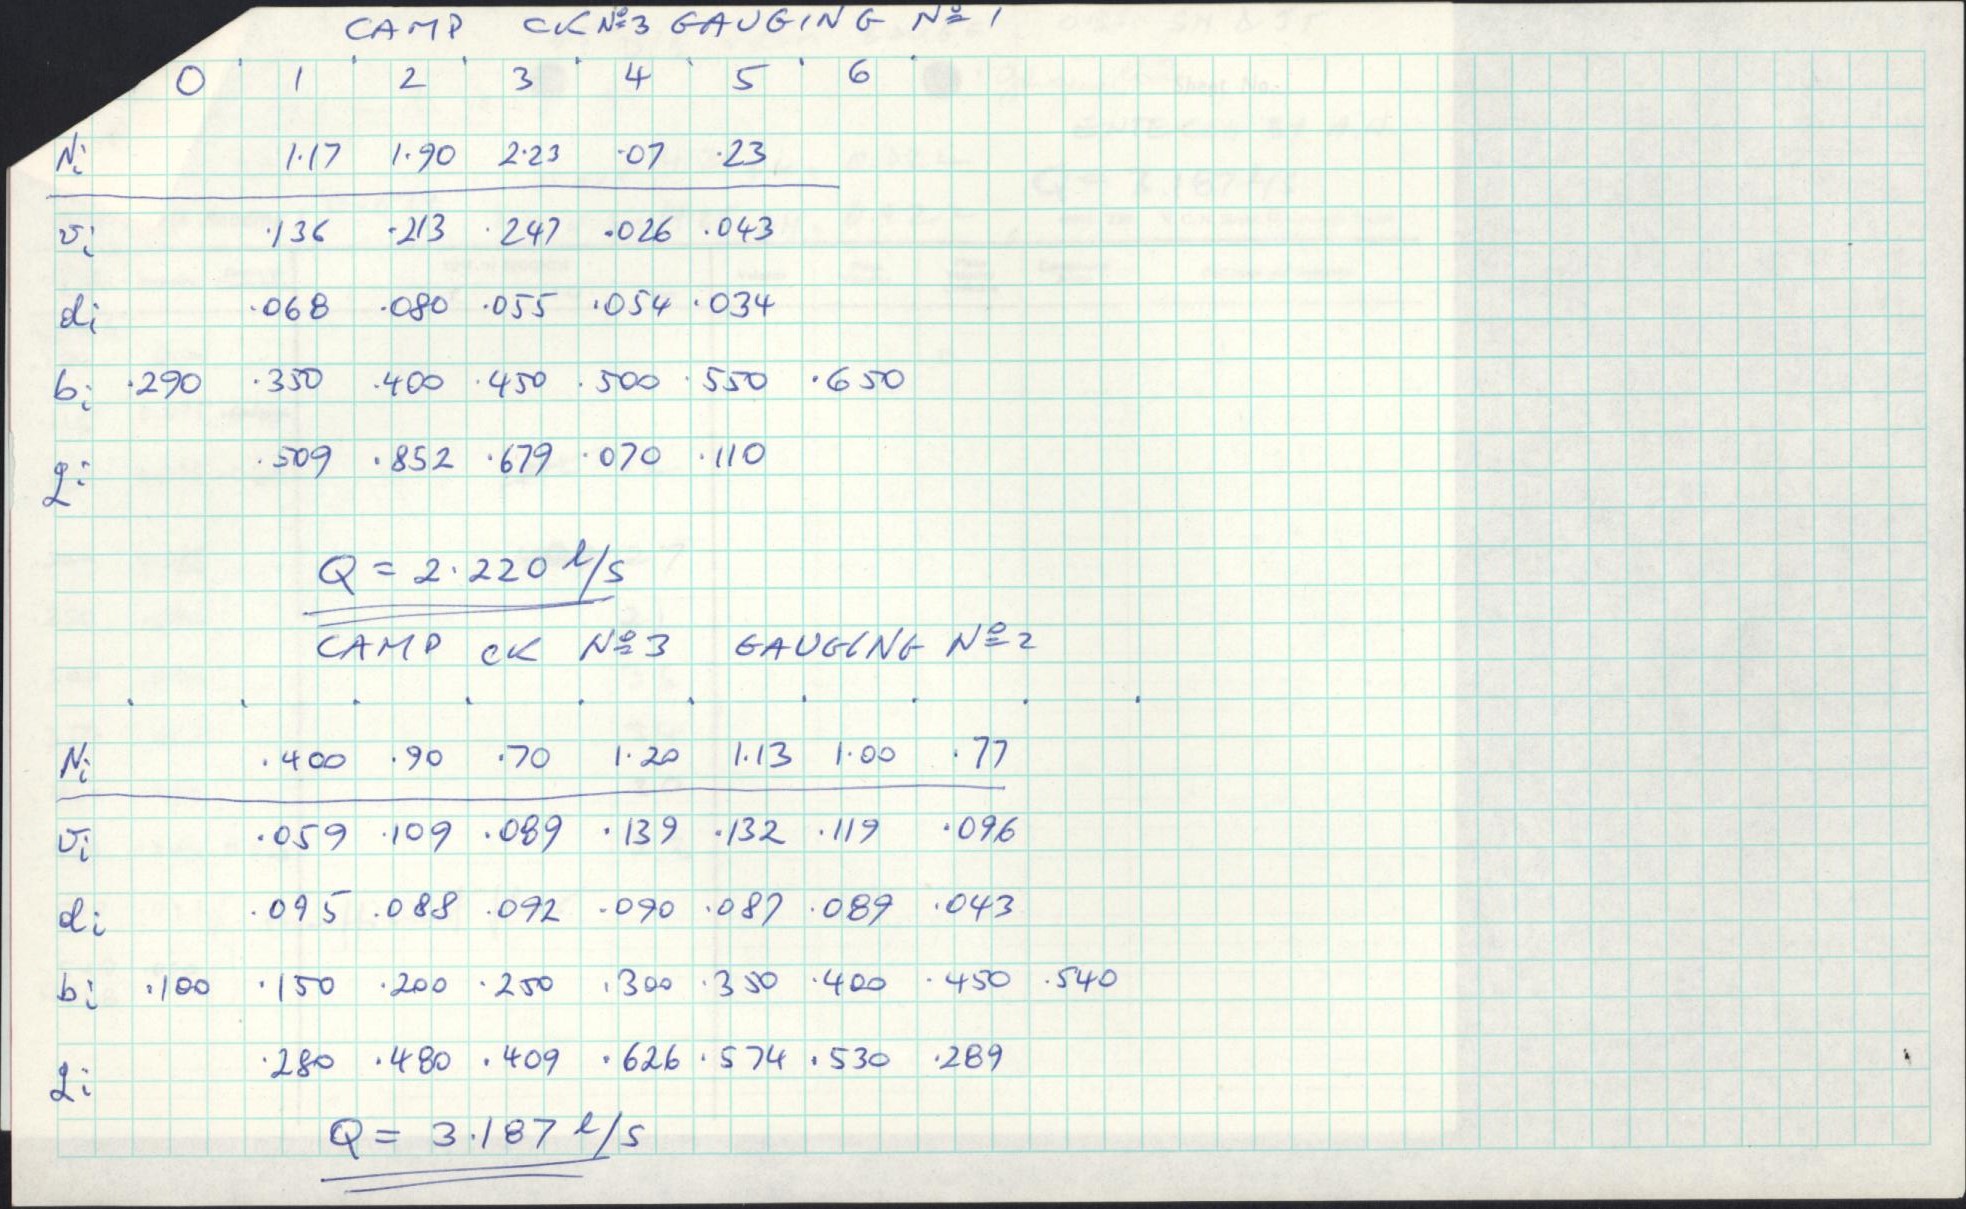 CAMP CK Nº3 GAUGING Nº 1
0 1 2 3 4 5 6
Ni 1.17 1.90 2.23 .07 .23
vi .136 .213 .247 .026 .043
di .068 .080 .055 .054 .034
bi .290 .350 .400 .450 .500 .550 .650
qi .509 .852 .679 .070 .110
Q = 2.220 l/s
CAMP CK Nº3 GAUGING Nº2
Ni .400 .90 .70 1.20 1.13 1.00 .77
vi .059 .109 .089 .139 .132 .119 .096
di .095 .088 .092 .090 .087 .089 .043
bi .100 .150 .200 .250 .300 .350 .400 .450 .540
qi .280 .480 .409 .626 .574 .530 .289
Q = 3.187 l/s